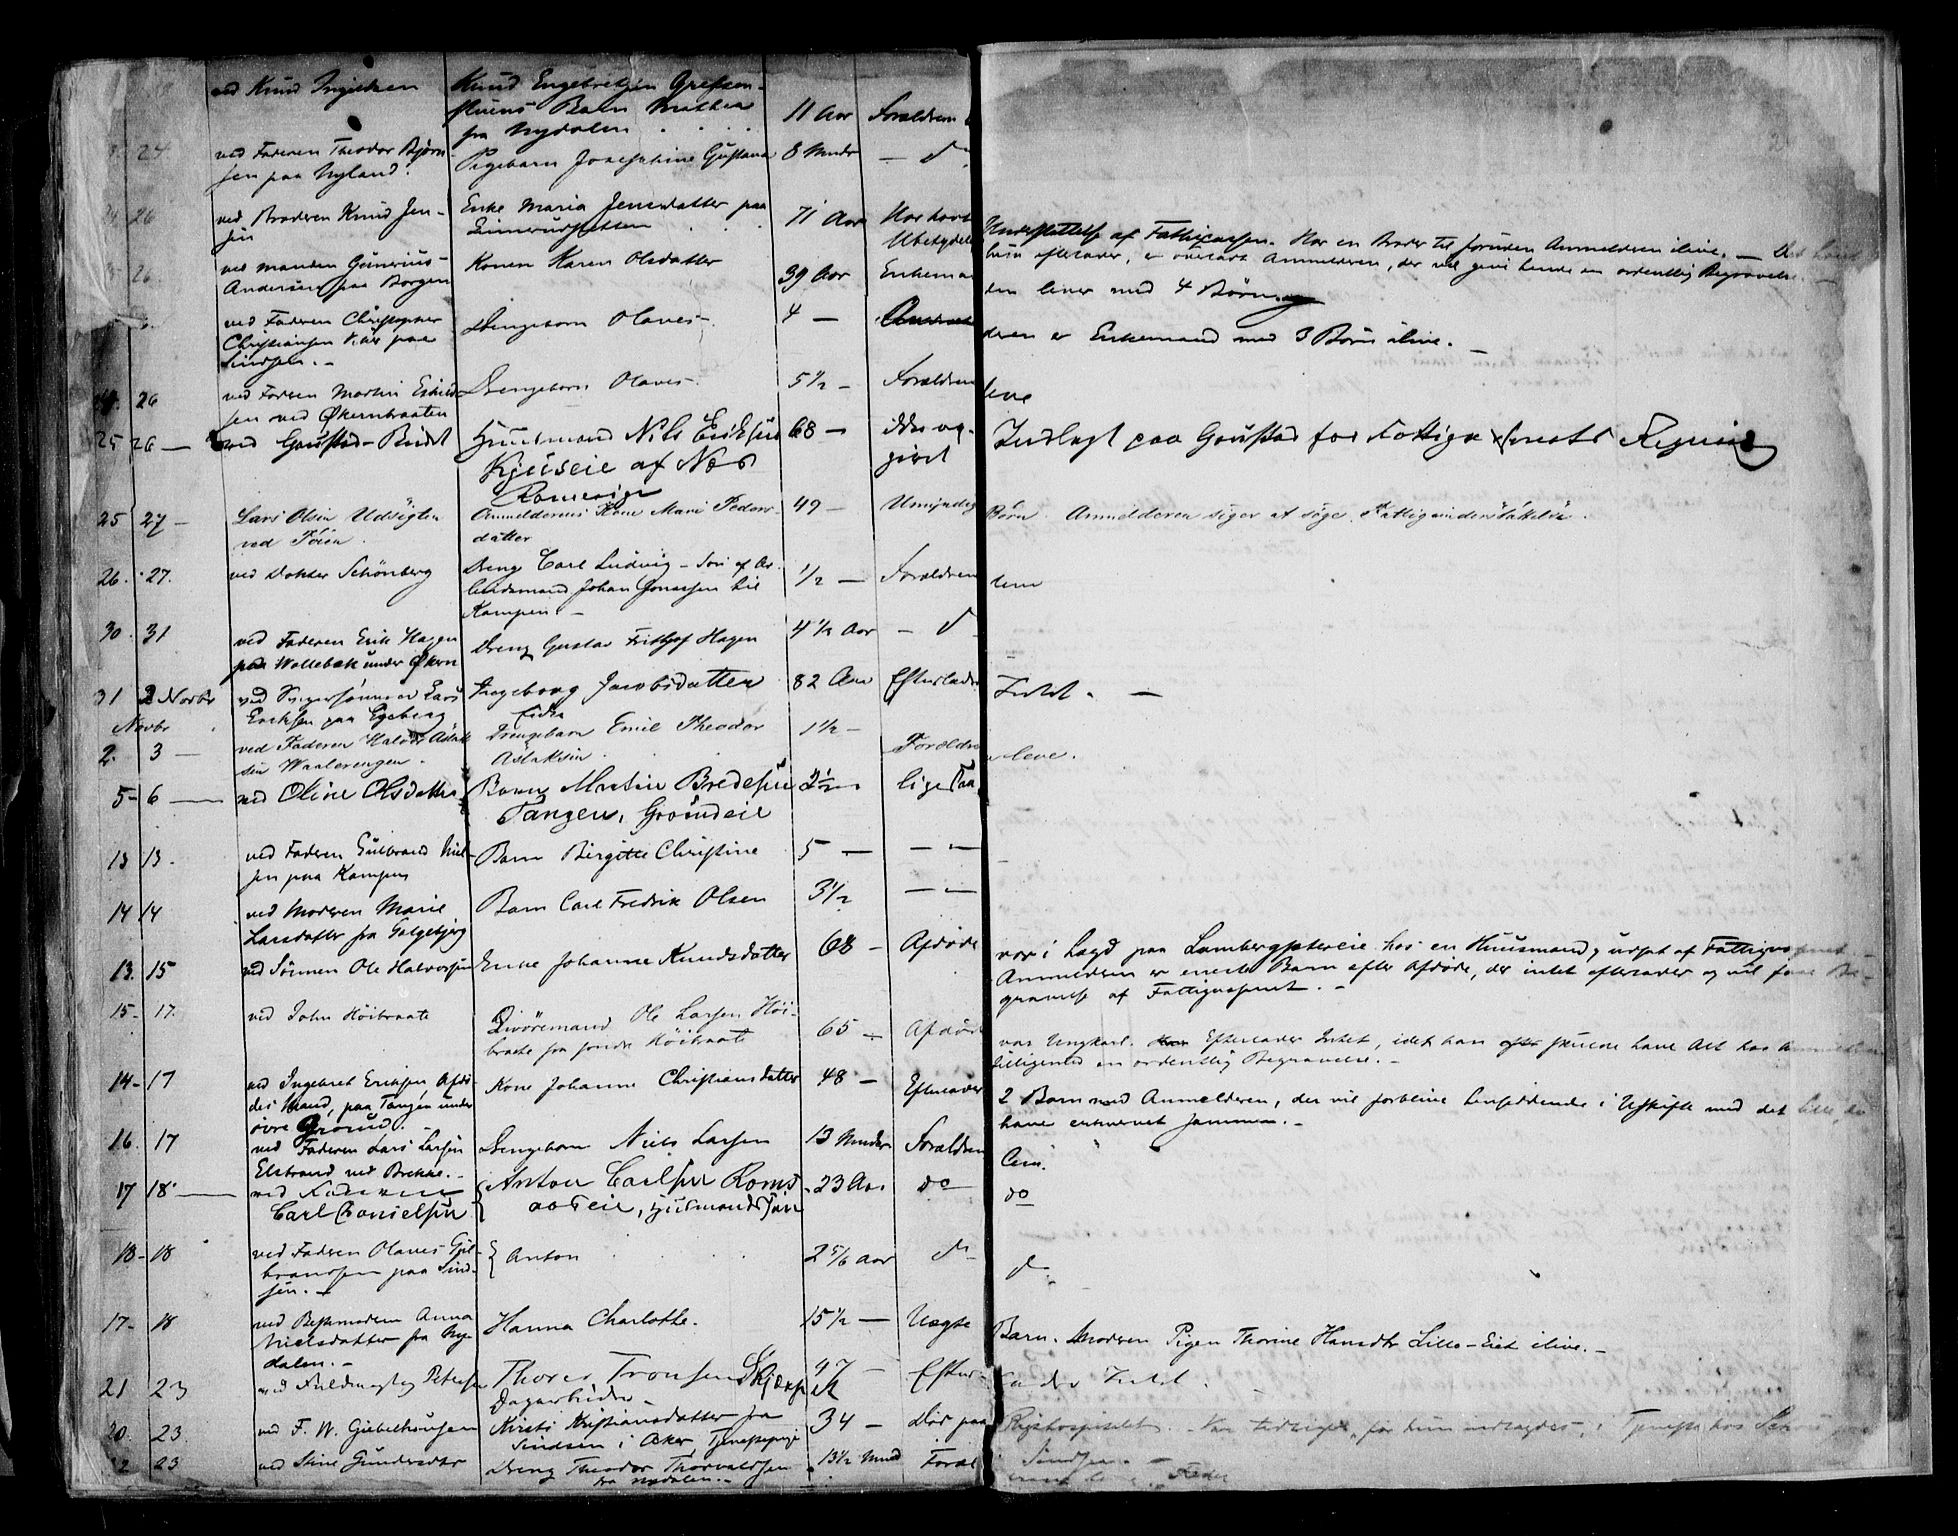 ved Knud Ingielsen Knud Engebretsen Grefsen-
stuens Barn Mathea
fra Nydalen . . . 11 Aar Forældrene
24 ved Faderen Theodor Bjørn-
sen paa Nyland. Pigebarn Josephine Gustava 8 Mndr — d
26 ved Broderen Knud Jen-
sen Enke Maria Jensdatter paa
. . . 71 Aar Har havt Understøttelse af Fattigcassen. Har en Broder til foruden Anmelderen ilive. —
Ubetydel
hun efterlader, er overladt Anmelderen, der vil give hende en ordentlig Begravelse. —
26. ved Manden Gunerius
Andersen paa Borgen Konen Karen Olsdatter 39 Aar Enkeman
den lever med 4 Børn
ved Faderen Christopher
Christiansen paa
Sindsen. — Drengebarn Olaves — 4 —
deren er Enkemand med 3 Børn ilive. —
26 ved Faderen Martin
sen ved Økernbraaten Drengebarn Olaves — 5½ — Forældrene
leve
25 26 — ved Goustad-Budet Huusmand Nils Eriksen 68 — ikke op-
givet Indlagt paa Goustad for Fattigv
Kjuseie af Næs
Romerige
25 27 — Lars Olsen Udsigten
ved Tøien. Anmelderens Kone Mari Peders-
datter 49 — Umyndig
Børn. Anmelderen siger at søge Fattigunderstøttelse.
26. 27. ved Dokter Schönberg Dreng Carl Ludvig — Søn af Ar-
beidsmand Johan Jonassen lil
Kampen — ½ — Forældrene
leve
30. 31 ved Faderen Erik Hagen
paa Wollebæk under Økern Dreng Gustav Frithjof Hagen 4½ Aar — d
31 2 Novbr ved Svigersønnen Lars
Eriksen paa Egeberg Ingeborg Jacobsdatter 82 Aar Efterlader
Intet. —
Novbr
2. 3 — ved Faderen Halvor Aslak
sen Waalerengen. Drengebarn Emil Theodor
Aslaksen. 1½ — Forældre
leve.
5- 6 — ved Oline Olsdatter Barn Martin Bredesen
Tangen, Grorudeie 2½ ligesaa
13 13. ved Faderen Gulbrand Niel-
sen paa Kampen Barn Birgitte Christine 5 — — „ —
14 14 ved Moderen Marie
Larsdatter fra Galgebjerg Barn Carl Fredrik Olsen 3½ — „ —
13. 15 ved Sønnen Ole Halvorsen Enke Johanne Knudsdatter 68 — Afdøde
var i Lægd paa Lambergsetereie hos en Huusmand, udsat af Fattigv
Anmelderen er eneste Barn efter Afdøde, der intet efterlader og vil faae Be-
gravelse af Fattigvæsenet. —
15- 17. ved John Høibraate Livøremand Ole Larsen Høi-
braate fra søndre Høibraate 65 — Afdøde
var Ungkarl. Efterlader Intet, idet han skulde have Alt hos
en ordentlig Begravelse. —
14- 17 ved Ingebret Eriksen Afdø-
des Mand, paa Tangen under
øvre Grorud. Kone Johanne Christiansdatter 48 — Efterlader
2 Børn med Anmelderen, der vil forblive hensiddende i Uskifte med det lille
have erhvervet sammen. —
16. 17 ved Faderen Lars Larsen
Elstrand ved Brekke. — Drengebarn Niels Larsen 13 Mndr Forældrene
leve.
17 18 — ved Faderen
Carl Danielsen Anton Carlsen Roms
aaseie, Husmandssøn 23 Aar do do
18- 18 ved Faderen Olaves Gul-
brandsen paa Sind-
sen. — Anton . . . 2 5/6 Aar d d
17- 18 ved Bestemoderen Anna
Nielsdatter fra Ny-
dalen. — Hanna Charlotte. 15½ — Uægte
Barn. Moderen Pigen Thorine Hansdtr Lille-Eiet ilive. —
21 23 ved Fuldmægtig Petersen Thores Tronsen
Dagarbeider 47 — Efter-
lader Intet.
20. 23. ved F. W. Giebelhausen Kirsti Kristiansdatter fra
Sindsen i Aker, Tjenestepige 34 — Død paa
Rigshospitalet. Var tidligere, før hun indlagdes, i Tjeneste hos
Sindsen. —
22 23 ved Stine Gundersdtr Dreng Theodor Thorvaldsen
fra Nydalen. — 13½ Mnd Foræl